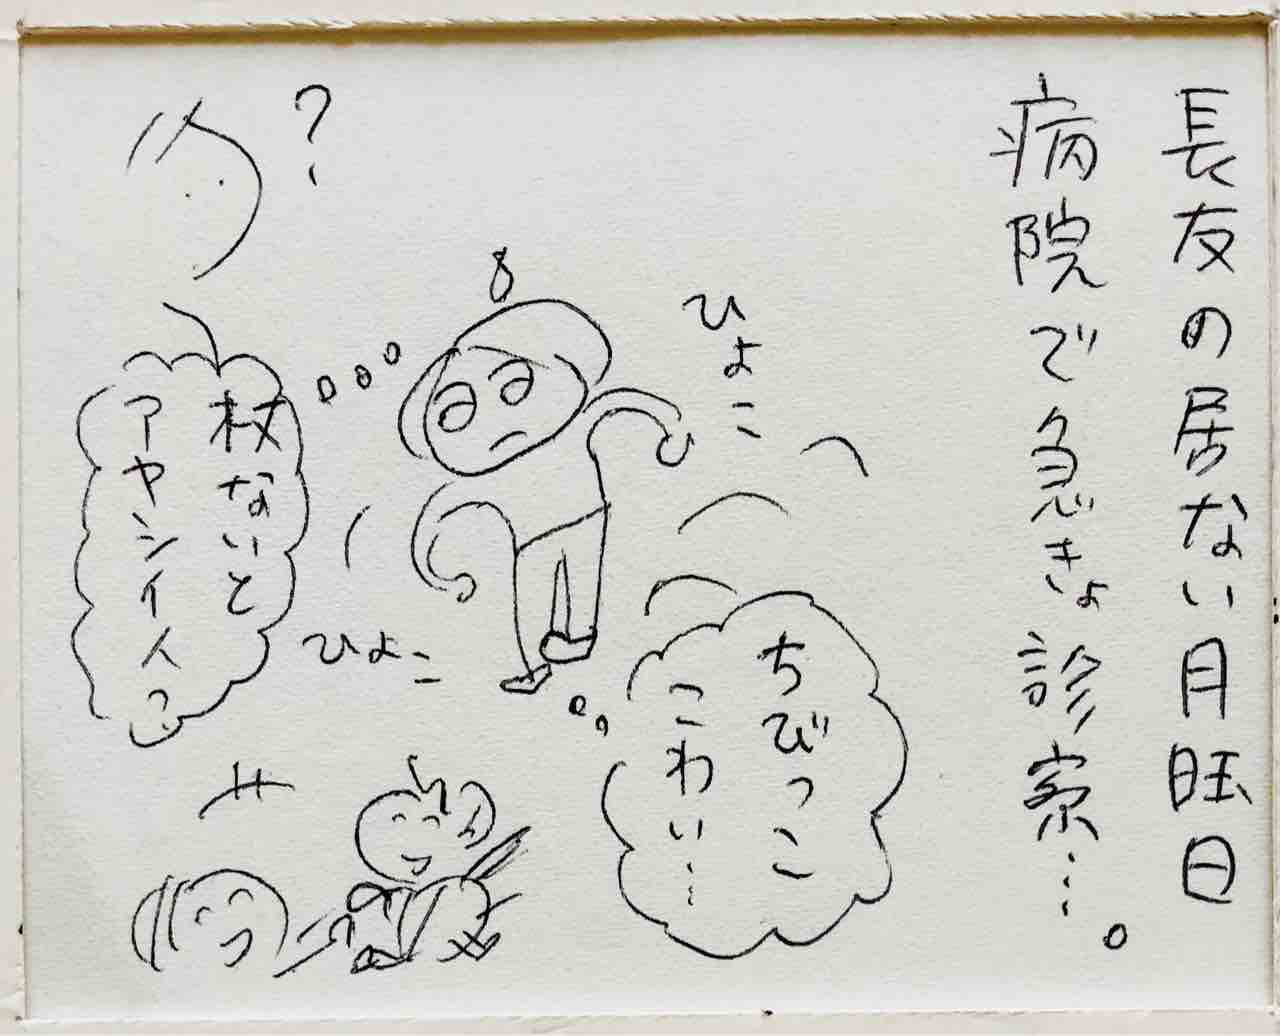 長友の居ない月曜日
病院で急きょ診察…。
?
ひよこ
杖ないと
アヤシイ人?
ひよこ
ちびっこ
こわい…